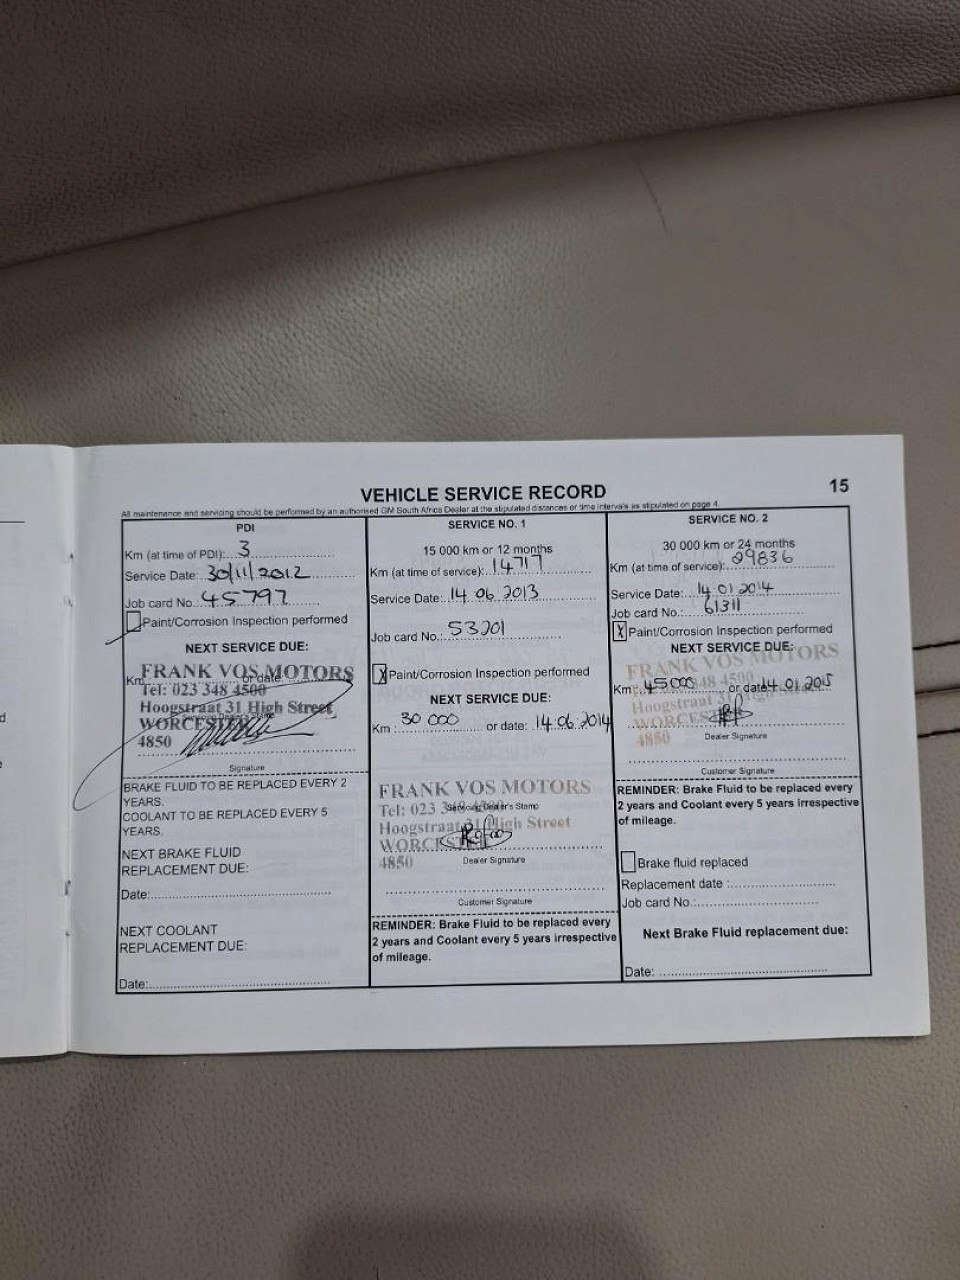 VEHICLE SERVICE RECORD
15
All maintenance and servicing should be performed by an authorised GM South Africa Dealer at the stipulated distances or time intervals as stipulated on page 4.
PDI
Km (at time of PDI): 3
Service Date: 30/11/2012
Job card No. 45797
Paint/Corrosion Inspection performed
NEXT SERVICE DUE:
Km or date:
FRANK VOS MOTORS
Tel: 023 348 4500
Hoogstraat 31 High Street
WORCESTER
4850
Signature
BRAKE FLUID TO BE REPLACED EVERY 2
YEARS.
COOLANT TO BE REPLACED EVERY 5
YEARS.
NEXT BRAKE FLUID
REPLACEMENT DUE:
Date:
NEXT COOLANT
REPLACEMENT DUE:
Date:
SERVICE NO. 1
15 000 km or 12 months
Km (at time of service): 14717
Service Date: 14.06.2013
Job card No.: 53201
X Paint/Corrosion Inspection performed
NEXT SERVICE DUE:
Km : 30 000 or date: 14.06.2014
FRANK VOS MOTORS
Tel: 023 348 4500
Servicing Dealer's Stamp
Hoogstraat 31 High Street
WORCESTER
4850
Dealer Signature
Customer Signature
REMINDER: Brake Fluid to be replaced every
2 years and Coolant every 5 years irrespective
of mileage.
SERVICE NO. 2
30 000 km or 24 months
Km (at time of service): 29836
Service Date: 14.01.2014
Job card No.: 61311
X Paint/Corrosion Inspection performed
NEXT SERVICE DUE:
FRANK VOS MOTORS
Km : 45000 or date 14.01.2015
348 4500
Hoogstraat 31 High
WORCESTER
4850
Dealer Signature
Customer Signature
REMINDER: Brake Fluid to be replaced every
2 years and Coolant every 5 years irrespective
of mileage.
Brake fluid replaced
Replacement date :
Job card No.:
Next Brake Fluid replacement due:
Date: